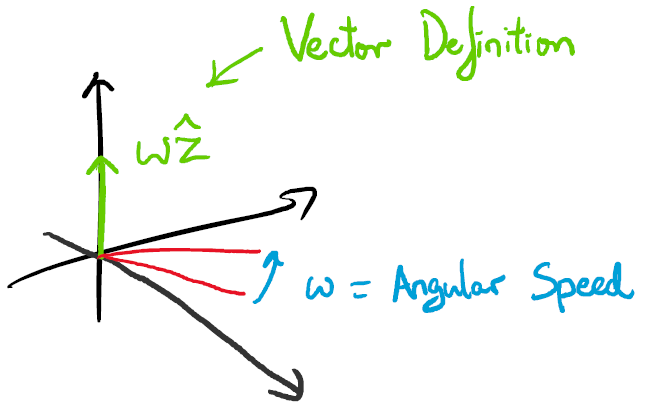 Vector Definition
ωẑ
ω = Angular Speed